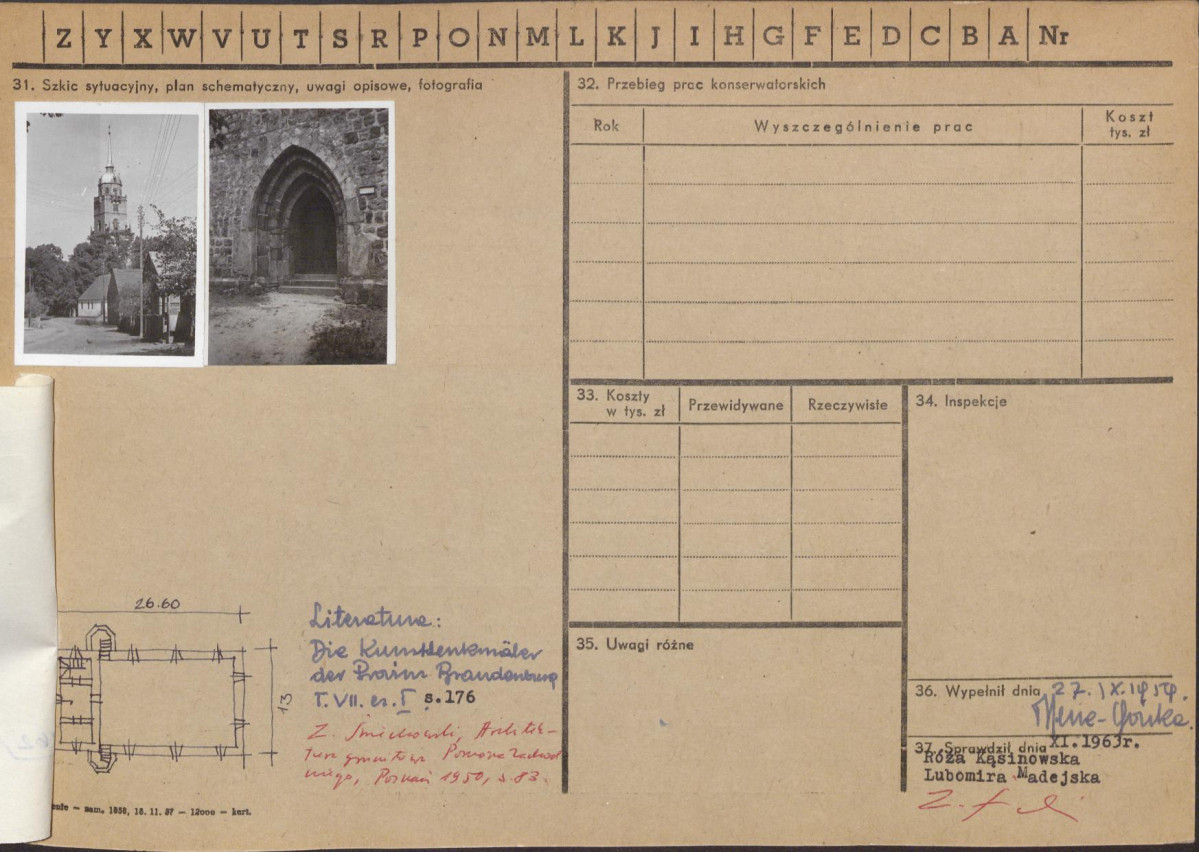 Z Y X W V U T S R P O N M L K J I H G F E D C B A Nr
31. Szkic sytuacyjny, plan schematyczny, uwagi opisowe, fotografia
26.60
13
Literatura:
Die Kunstdenkmäler
der Provinz Brandenburg
T. VII. cz. I s.176
Architek-
Pomorza Zachod
niego, Poznań 1950, s. 83.
sam. 1858, 18. 11. 57 — 12000 — kart.
32. Przebieg prac konserwatorskich
Rok
Wyszczególnienie prac
Koszt
tys. zł
33. Koszty
w tys. zł
Przewidywane
Rzeczywiste
34. Inspekcje
35. Uwagi różne
36. Wypełnił dnia 27. IX. 1959.
37. Sprawdził dnia XI.1963r.
Róża Kąsinowska
Lubomira Madejska